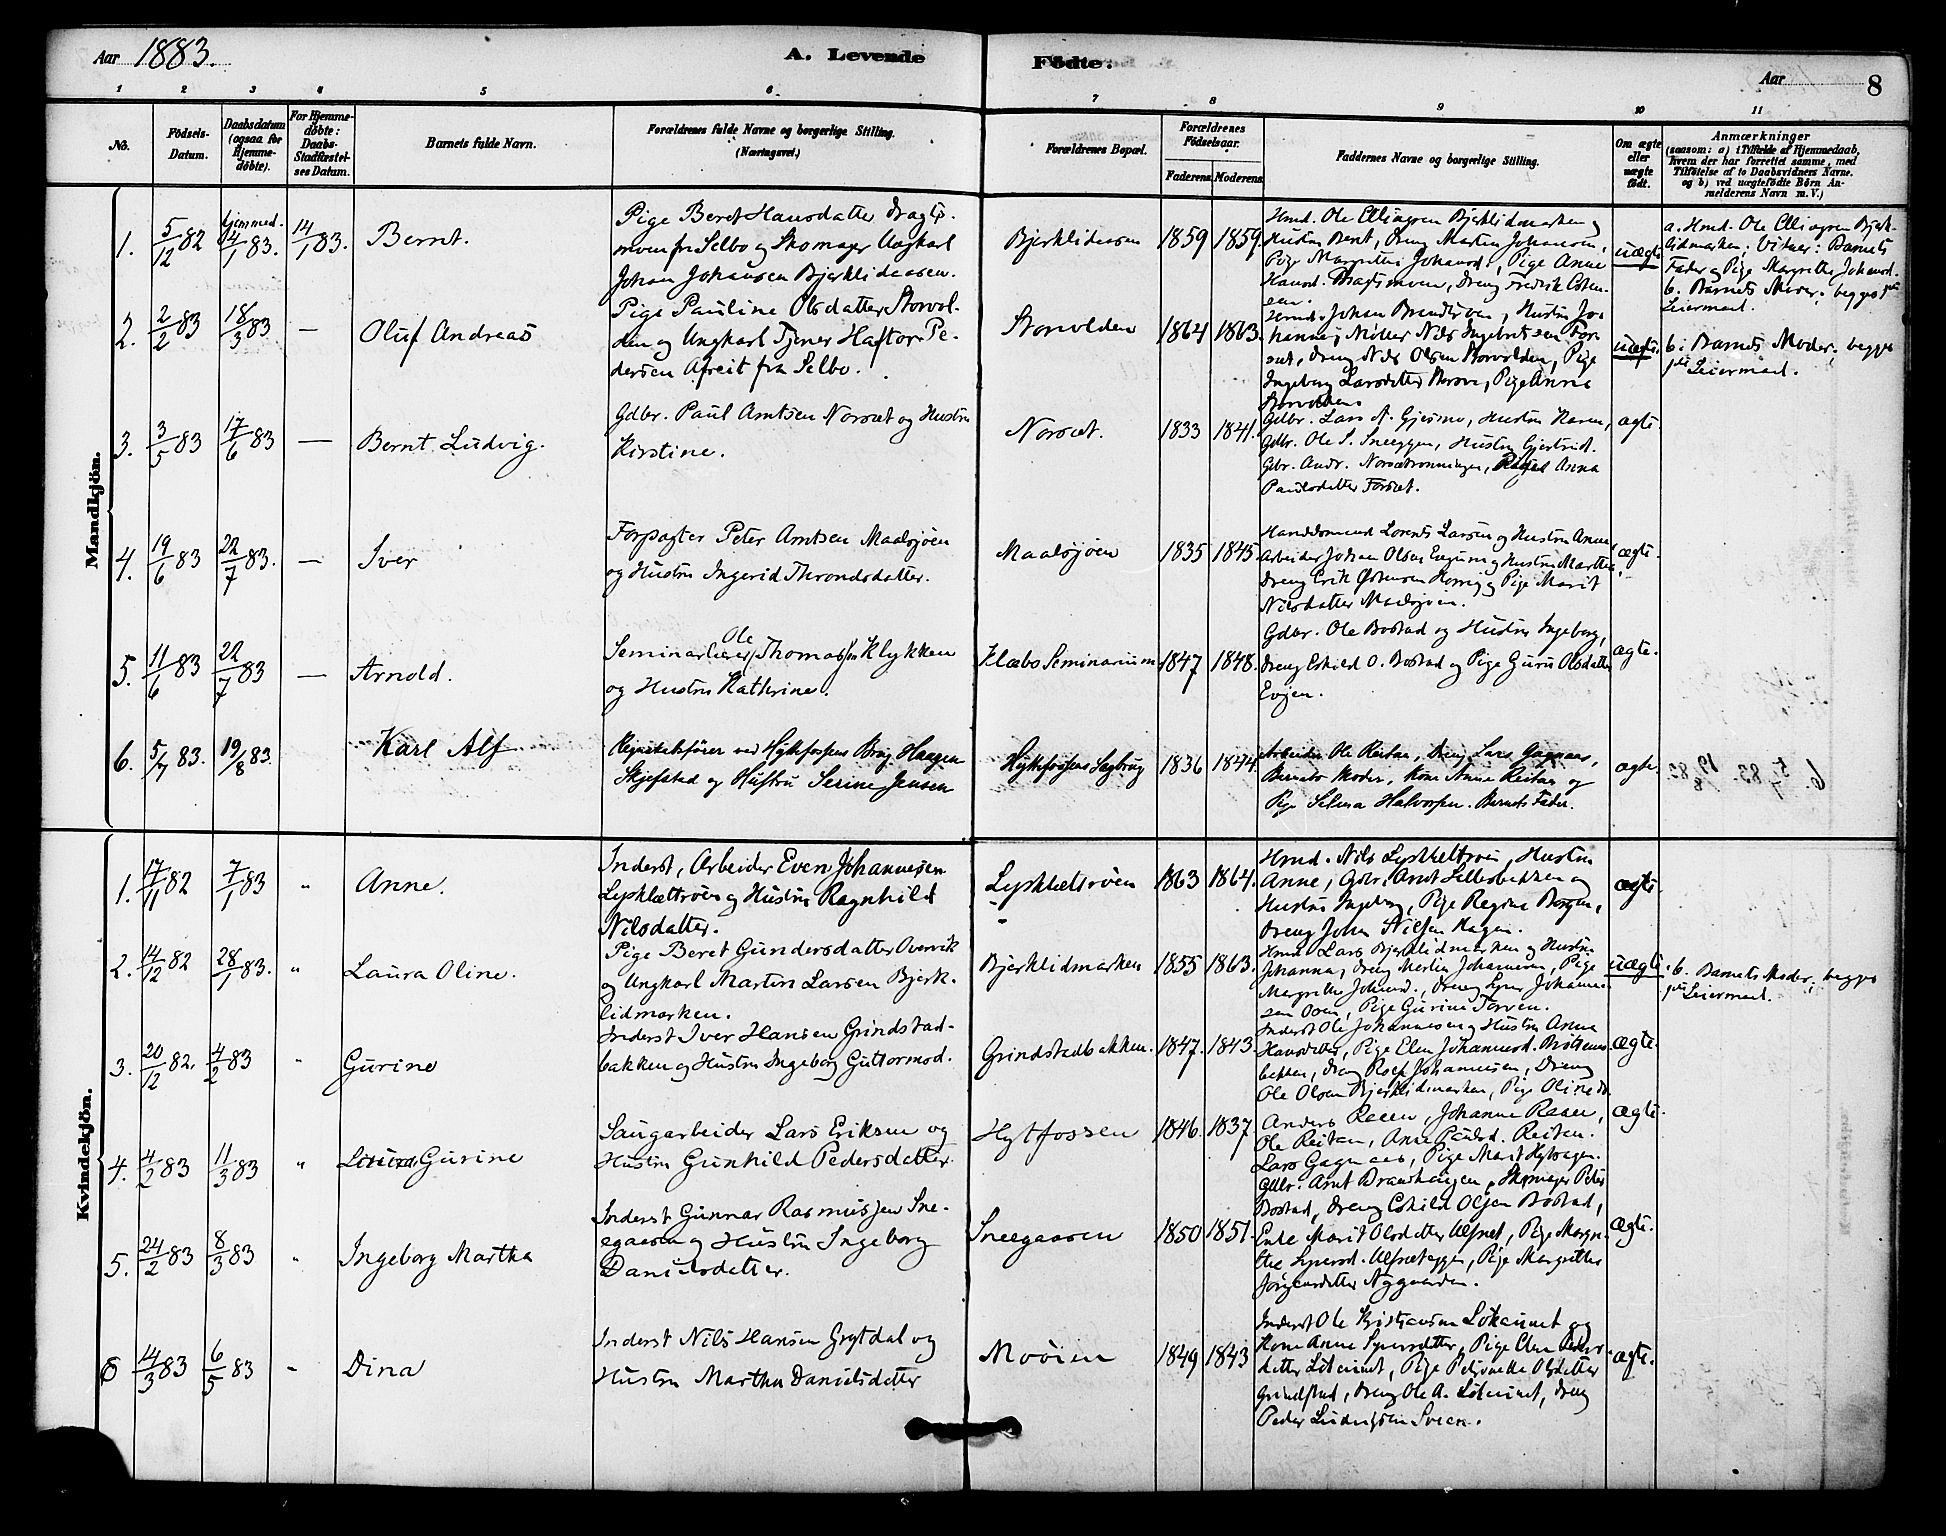 Aar 1883.
A. Levende Födte.
Aar
8
1 2 3 4 5 6 7 8 9 10 11
No.
Födsels-
Datum.
Daabsdatum
(ogsaa for
Hjemme-
döbte).
For Hjemme-
döbte:
Daabs-
Stadfæstel-
ses Datum.
Barnets fulde Navn.
Forældrenes fulde Navne og borgerlige Stilling.
(Næringsvei.)
Forældrenes Bopæl.
Forældrenes
Födselsaar.
Faderens. Moderens.
Faddernes Navne og borgerlige Stilling.
Om ægte
eller
uægte
födt.
Anmærkninger
(saasom: a) i Tilfælde af Hjemmedaab,
hvem der har forrettet samme, med
Tilföielse af to Daabsvidners Navne.
og b) ved uægtefödte Börn An-
melderens Navn m. V.)
Mandkjön.
1. 5/12 82 hjemmed. 4/1 83. 14/1 83. Bernt.
Pige Beret Hansdatter Dragsj-
moen fra Selbo og Skomager Ungkarl
Johan Johansen Bjerklidaasen.
Bjerklidaasen 1859 1859.
Hmd. Ole Ellingsen Bjerklidmarken og
Hustru Berit, Dreng Martin Johansen,
Pige Margrethe Johansd., Pige Anne
Hansd. Dragsmoen, Dreng Fredrik Esten-
sen.
uægte
a. Hmd. Ole Ellingsen Bjerk-
lidmarken; Vitner: Barnets
Fader og Pige Margrethe Johansd.
b. Barnets Moder. begges 1ste
Leiermaal.
2. 2/2 83 18/3 83 — Oluf Andreas
Pige Pauline Olsdatter Storvol-
den og Ungkarl Tjener Haftor Pe-
dersen Afreit fra Selbo.
Storvolden 1864 1863.
Hmd. Johan Brandtsven, Hustru Jo-
hanna, Møller Nils Ingebretsen For-
set, Dreng Nils Olsen Storvolden, Pige
Ingeborg Larsdatter, Pige Anna
Storvolden.
uægte.
b. Barnets Moder. begges
1ste Leiermaal.
3. 3/5 83 17/6 83 — Bernt Ludvig.
Gdbr. Paul Arntsen Norset og Hustru
Kirstine.
Norset. 1833 1841.
Gdbr. Lars A. Gjesmo, Hustru Karen,
Gdbr. Ole S. Sneeggen, Hustru Gjertrud.
Gbr. Andr. Norsetrønningen, Anna
Paulsdatter Forset.
ægte
4. 19/6 83 22/7 83. — Iver
Forpagter Peter Arntsen Maalsjøen
og Hustru Ingerid Throndsdatter.
Maalsjøen 1835 1845.
Handelsmand Lorents Larsen og Hustru Anne,
Arbeider Johan Olsen og Hustru Martha,
Dreng Erik Østensen og Pige Marit
Nilsdatter Maalsjøen.
ægte.
5. 11/6 83 22/7 83 — Arnold.
Seminarlærer Ole Thomassen Klykken
og Hustru Kathrine.
Klæbo Seminarium 1847 1848.
Gdbr. Ole Bostad og Hustru Ingeborg,
Dreng Eskild O. Bostad og Pige Guru Olsdatter
Evjen.
ægte.
6. 5/7 83. 19/8 83. Karl Alf
Regnskabsfører ved Hytfossens Brug Haagen
Skjefstad og Hustru Serine Jensen
Hyttefossens Sagbrug 1836 1844.
Arbeider Ole Reitan, Dreng Lars Gagnaas,
Barnets Moder, Kone Anne Reitan og
Pige Selma Halvorsen. Barnets Fader.
ægte.
Kvindekjön.
1. 17/11 82 7/1 83 " Anne.
Inderst, Arbeider Even Johannesen
Lysklættrøen og Hustru Ragnhild
Nilsdatter.
Lysklætrøen 1863 1864.
Hmd. Nils Lysklettrøen, Hustru
Anne, Gdbr. Arnt Lillebekken og
Hustru Ingeborg, Pige Regine Borgen,
Dreng Johan Nilsen Hagen.
ægte
2. 14/12 82 28/1 83. " Laura Oline.
Pige Beret Gundersdatter Overvik
og Ungkarl Martin Larsen Bjerk-
lidmarken.
Bjerklidmarken 1855 1863.
Hmd. Lars Bjerklidmarken og Hustru
Johanna, Dreng Martin Johannesen, Pige
Margrethe Johansd., Dreng Johanne-
sen Osen, Pige Gurine Torven.
uægte.
b. Barnets Moder; begges
1ste Leiermaal.
3. 20/12 82. 4/2 83 " Gurine
Inderst Iver Hansen Grindstad-
bakken og Hustru Ingeborg Guttormsd.
Grindstadbakken. 1847. 1843
Inderst Ole Johannesen og Hustru Anne
Hansdatter, Pige Elen Johannesd.
bakken, Dreng Johannesen, Dreng
Ole Olsen Bjerklidmarken, Pige Oline
ægte.
4. 4/2 83 11/3 83 " Gurine
Saugarbeider Lars Eriksen og
Hustru Gunhild Pedersdatter.
Hytfossen 1846. 1837
Anders Raaen, Johanna Raaen,
Ole Reitan, Anne Paulsd. Reitan.
Lars Gagnaas, Pige Marit
ægte.
5. 24/2 83 8/3 83 " Ingeborg Martha
Inderst Gunnar Rasmussen Sne-
egaasen og Hustru Ingeborg
Danielsdatter.
Sneegaasen 1850 1851.
Gdbr. Arnt Brandhaugen, Skomager Peter
Bostad, Dreng Eskild Olsen Bostad,
Enke Marit Olsdatter Ulsnet, Pige Margre-
the, Pige Margrethe
Jørgensdatter Nyggaarden.
ægte.
6 14/3 83 6/5 83 - Dina
Inderst Nils Hansen Grytdal og
Hustru Martha Danielsdatter
Moøien 1849 1843
Inderst Ole Kristiansen og
Kone Anne, Pige Elen Peders-
datter, Pige Petronelle Olsdatter
Grindstad, Dreng Ole A., Dreng
Peder Ludvigsen Svean.
ægte.